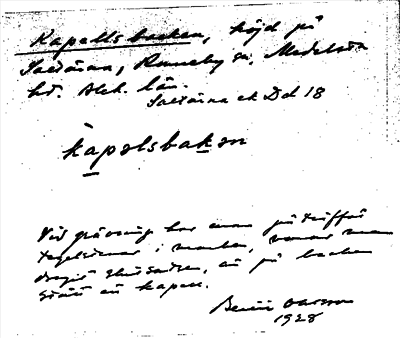 Kapellsbacken, höjd på
Saxärna, Ronneby sn, Medelsta
hd. Blek. län.
Saxärna ek Dd 18
kapəlsbakən
Vid grävning har man påträffat
tegelstenar i marken, varav man
dragit slutsatsen, att på backen
stått ett kapell.
1928